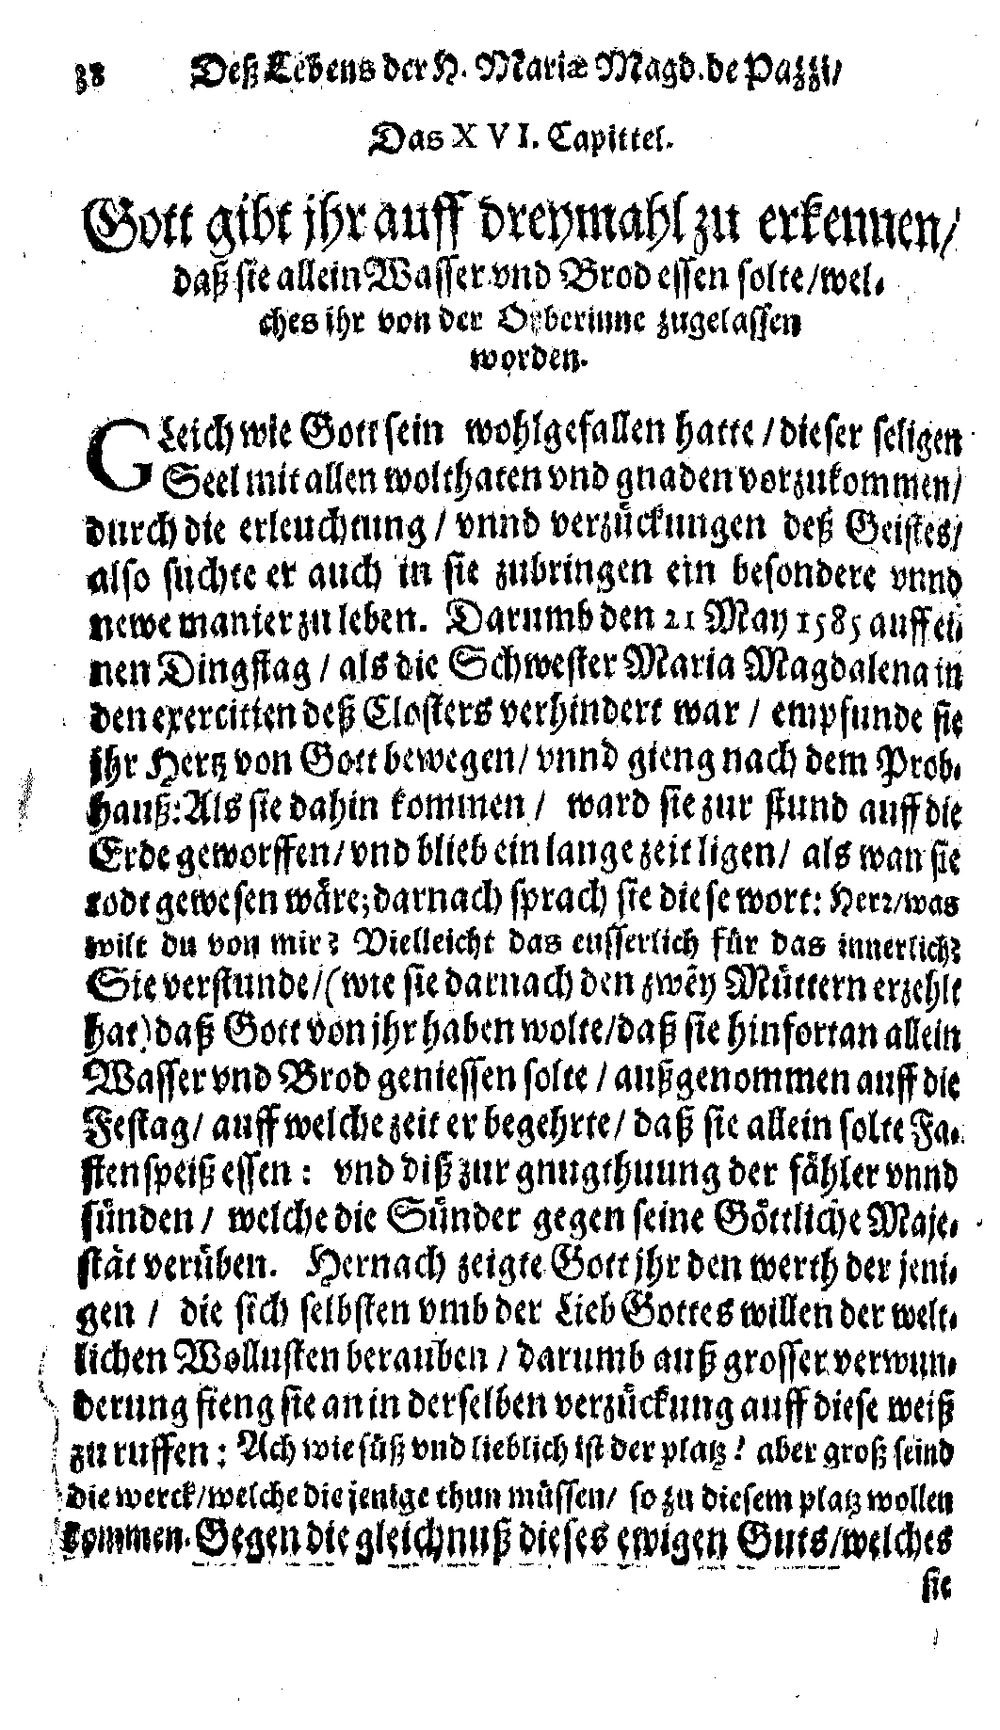 38 Deß Lebens der H. Mariæ Magd. de Pazzi/
Das XVI. Capittel.
Gott gibt jhr auff dreymahl zu erkennen/
daß sie allein Wasser vnd Brod essen solte/wel-
ches ihr von der Oberinne zugelassen
worden.
GLeich wie Gott sein wohlgefallen hatte/dieser seligen
Seel mit allen wolthaten vnd gnaden vorzukommen/
durch die erleuchtung/ vnnd verzückungen deß Geistes/
also suchte er auch in sie zubringen ein besondere vnnd
newe manier zu leben. Darumb den 21 May 1585 auff ei-
nen Dingstag/ als die Schwester Maria Magdalena in
den exercitien deß Closters verhindert war/ empfunde sie
jhr Hertz von Gott bewegen/ vnnd gieng nach dem Prob-
hauß: Als sie dahin kommen/ ward sie zur stund auff die
Erde geworffen/ vnd blieb ein lange zeit ligen/ als wan sie
todt gewesen wäre; darnach sprach sie diese wort: Herr/was
wilt du von mir? Vielleicht das eusserlich für das innerlich?
Sie verstunde/ (wie sie darnach den zwey Müttern erzehlt
hat) daß Gott von jhr haben wolte/daß sie hinfortan allein
Wasser vnd Brod geniessen solte/ außgenommen auff die
Festag/ auff welche zeit er begehrte/ daß sie allein solte Fa-
stenspeiß essen: vnd diß zur gnugthuung der fähler vnnd
sünden/ welche die Sünder gegen seine Göttliche Maje-
stät verüben. Hernach zeigte Gott jhr den werth der jeni-
gen/ die sich selbsten vmb der Lieb Gottes willen der welt-
lichen Wollusten berauben/ darumb auß grosser verwun-
derung fieng sie an in derselben verzückung auff diese weiß
zu ruffen: Ach wie süß vnd lieblich ist der platz! aber groß seind
die werck/welche die jenige thun müssen/ so zu diesem platz wollen
kommen. Gegen die gleichnuß dieses ewigen Guts/welches
sie